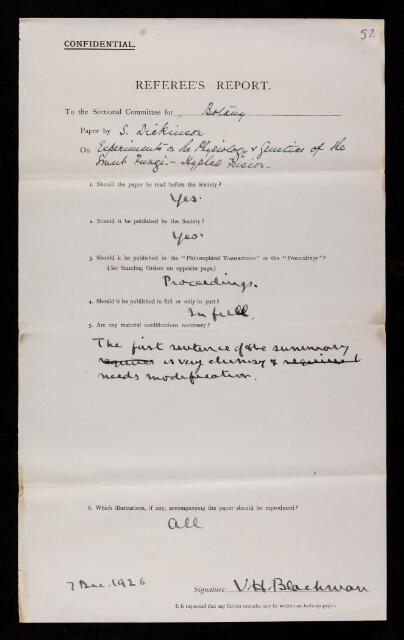 52
CONFIDENTIAL.
REFEREE'S REPORT.
To the Sectional Committee for Botany
Paper by S. Dickinson
On Experiments on the Physiology & Genetics of the
Smut Fungi. - Hyphal Fusion.
1. Should the paper be read before the Society?
Yes.
2. Should it be published by the Society?
Yes.
3. Should it be published in the "Philosophical Transactions" or the "Proceedings"?
(See Standing Orders on opposite page.)
Proceedings.
4. Should it be published in full or only in part?
In full.
5. Are any material modifications necessary?
The first sentence of the summary
requires is very clumsy & required
needs modification.
6. Which illustrations, if any, accompanying the paper should be reproduced?
All
7 Dec. 1926
Signature V.H. Blackman
It is requested that any further remarks may be written on foolscap paper.